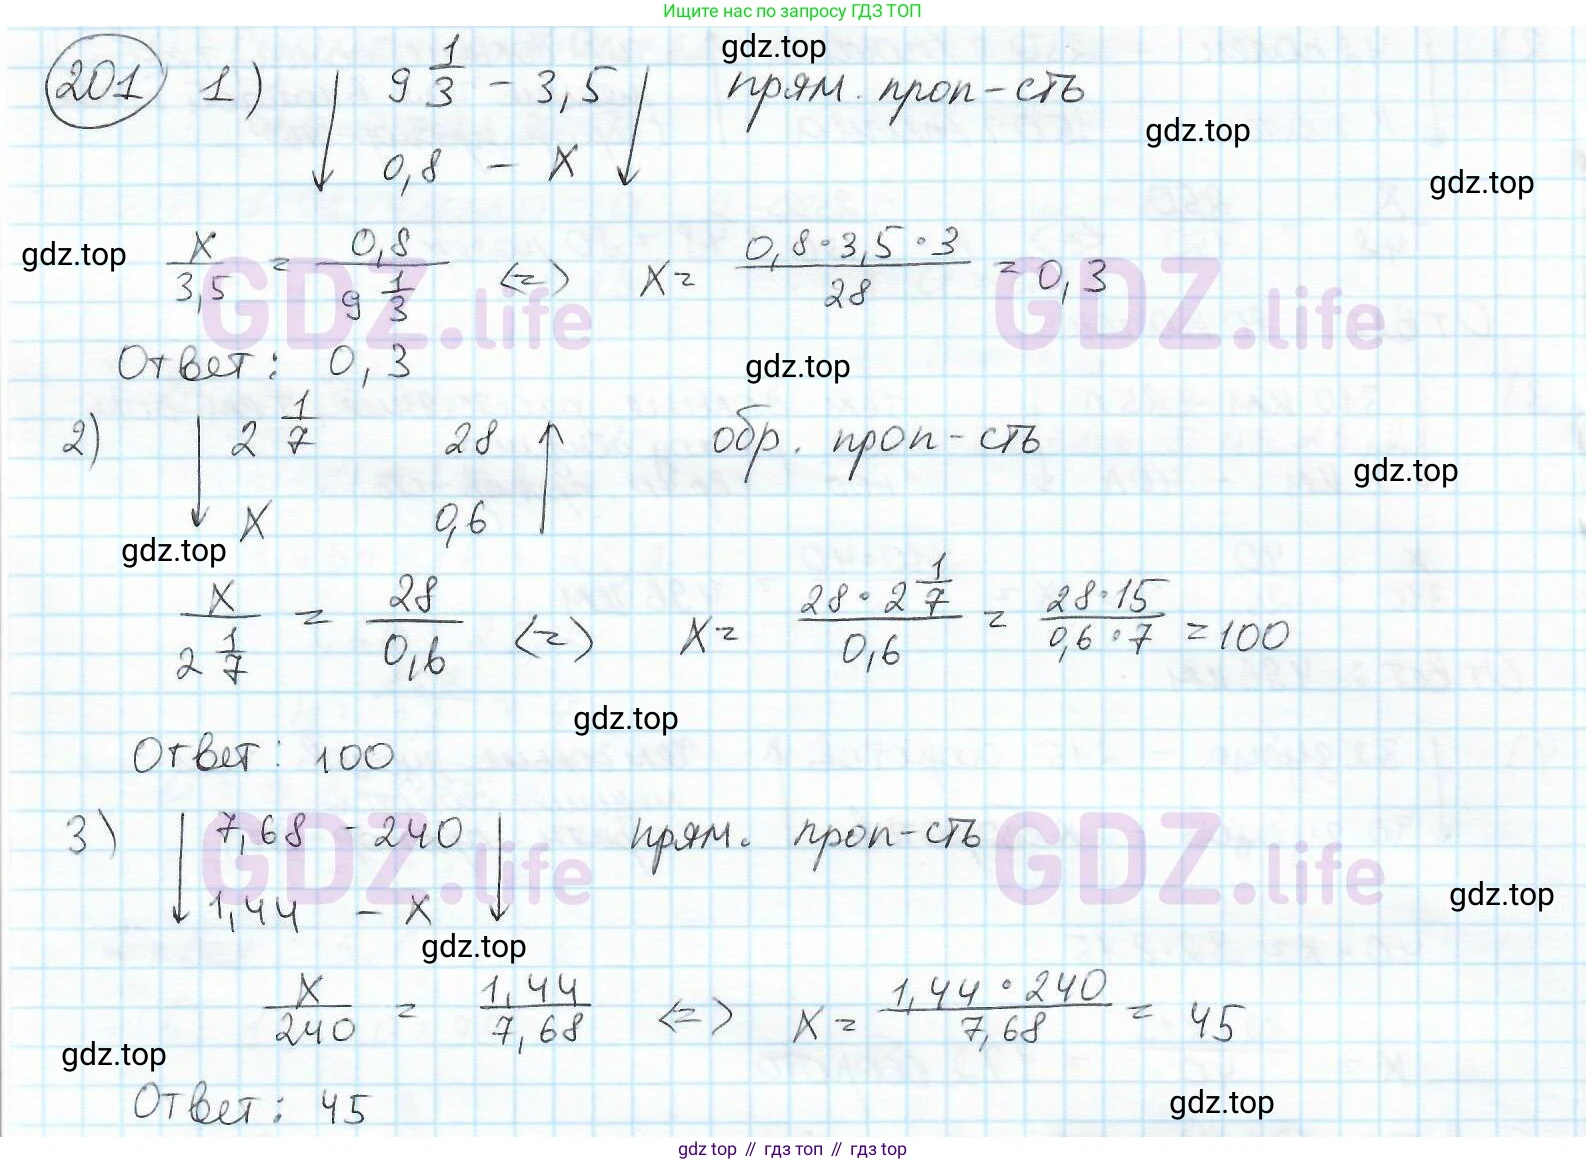 Ищите нас по запросу ГДЗ ТОП
gdz.top
201 1) 9 1/3 - 3,5 прям. проп-сть
gdz.top
0,8 - x
gdz.top
gdz.top
x/3,5 = 0,8/(9 1/3) <=> x = (0,8·3,5·3)/28 = 0,3
GDZ.life GDZ.life
Ответ: 0,3
gdz.top
2) 2 1/7 28 обр. проп-сть
gdz.top
x 0,6
gdz.top
x/(2 1/7) = 28/0,6 <=> x = (28·2 1/7)/0,6 = (28·15)/(0,6·7) = 100
gdz.top
Ответ: 100
3) 7,68 - 240 прям. проп-сть
GDZ.life GDZ.life
1,44 - x
gdz.top
gdz.top
x/240 = 1,44/7,68 <=> x = (1,44·240)/7,68 = 45
gdz.top
Ответ: 45
gdz.top
gdz top // гдз топ // гдз top